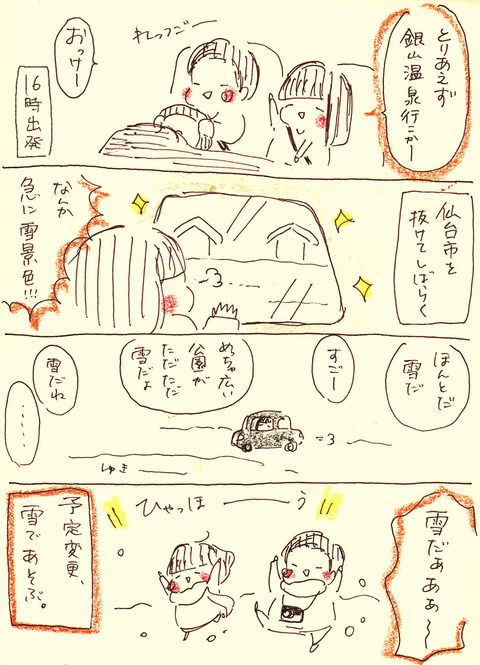 とりあえず
銀山温泉行こかー
れっつごー
おっけー
16時出発
仙台市を
抜けてしばらく
なんか
急に雪景色!!!
ほんとだ
雪だ
すごー
めちゃ広い
公園が
ただただ
雪だよ
雪だね
……
ゆき
雪だぁぁぁ〜
ひゃっほーーう
予定変更、
雪であそぶ。